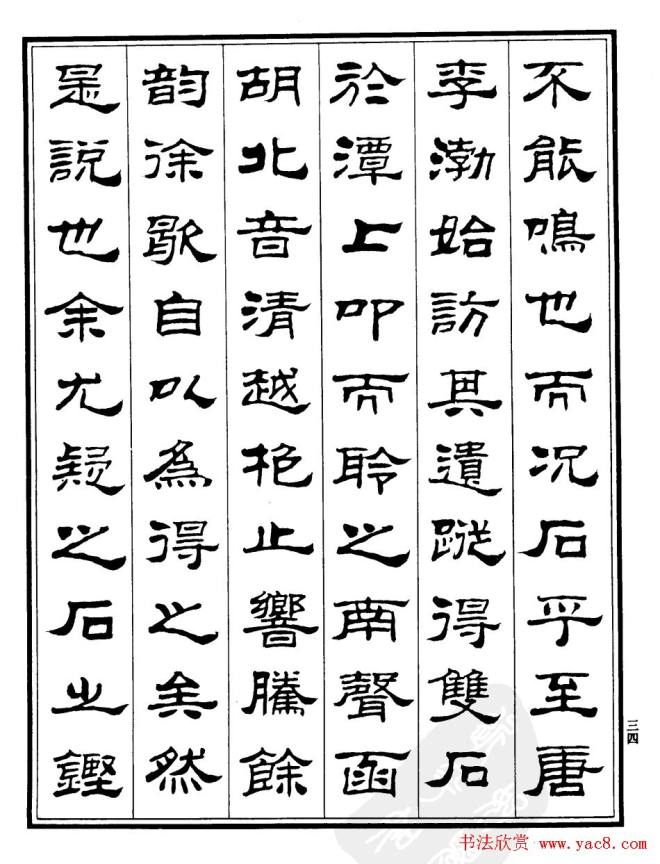 不能鳴也而况石乎至唐
李渤始訪其遺蹤得雙石
於潭上叩而聆之南聲函
胡北音清越枹止響騰餘
韵徐歇自以為得之矣然
是說也余尤疑之石之鏗
三四
书法欣赏 www.yac8.com